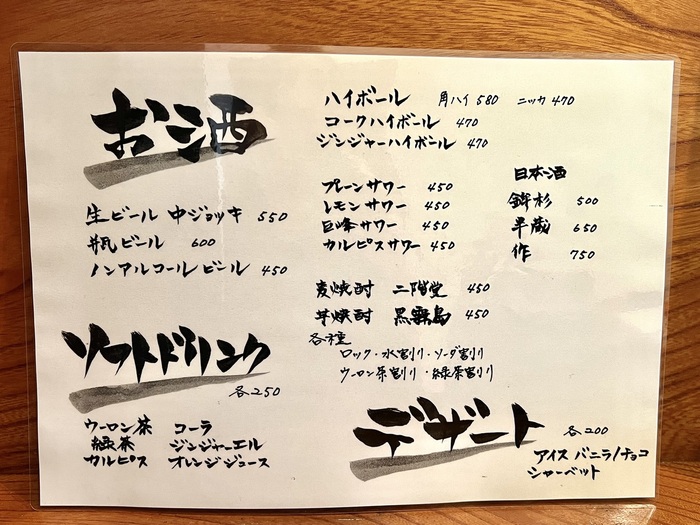 お酒
生ビール 中ジョッキ 550
瓶ビール 600
ノンアルコールビール 450
ソフトドリンク
各250
ウーロン茶 コーラ
緑茶 ジンジャーエール
カルピス オレンジジュース
ハイボール 角ハイ 580 ニッカ 470
コークハイボール 470
ジンジャーハイボール 470
プレーンサワー 450
レモンサワー 450
巨峰サワー 450
カルピスサワー 450
日本酒
鉾杉 500
半蔵 650
作 750
麦焼酎 二階堂 450
芋焼酎 黒霧島 450
各種
ロック・水割り・ソーダ割り
ウーロン茶割り・緑茶割り
デザート
各200
アイス バニラ/チョコ
シャーベット